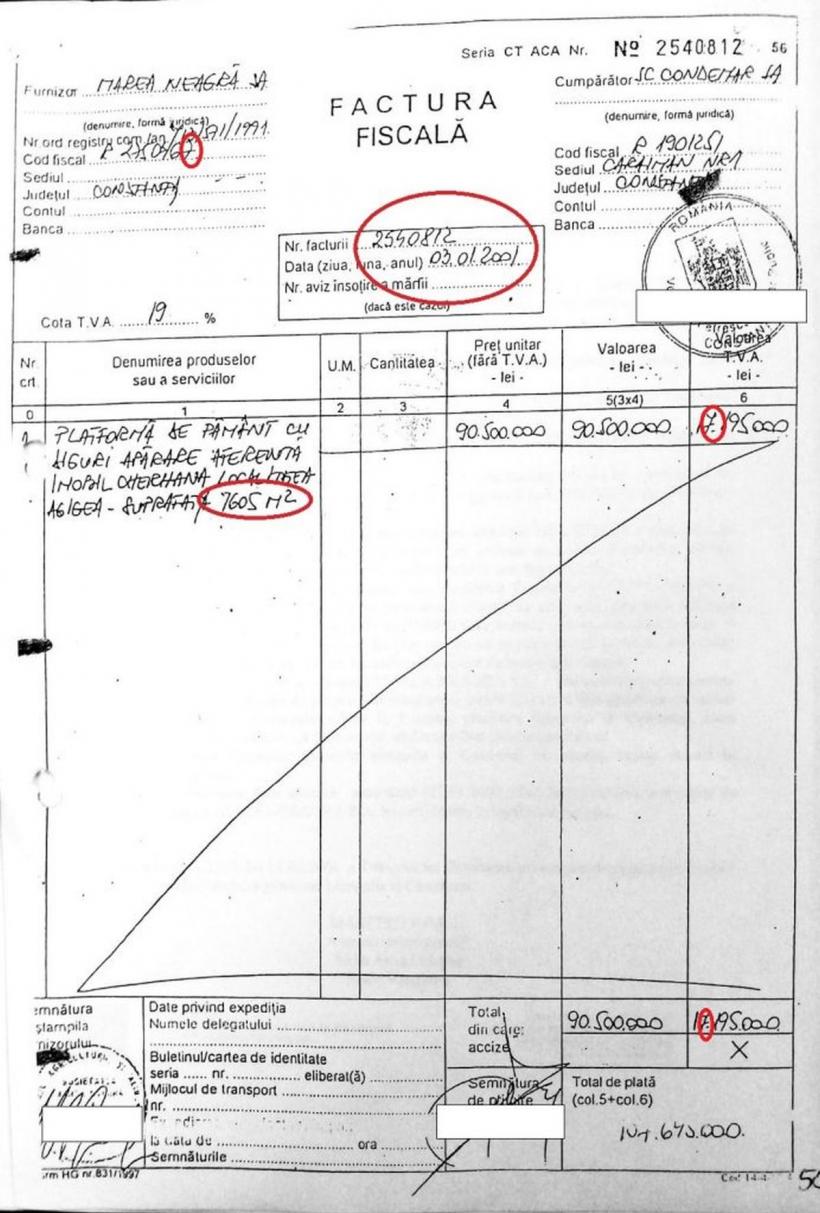 Seria CT ACA Nr. Nº 2540812 56
Furnizor MAREA NEAGRĂ SA
(denumire, formă juridică)
Nr ord registru com/an /1991
Cod fiscal R
Sediul
Județul CONSTANȚA
Contul
Banca
FACTURA
FISCALĂ
Cumpărător SC CONDEMAR SA
(denumire, formă juridică)
Cod fiscal R 190125
Sediul CARAIMAN NR1
Județul CONSTANȚA
Contul
Banca
ROMANIA
Nr. facturii 2540812
Data (ziua, luna, anul) 03.01.2001
Nr. aviz însoțire a mărfii
(dacă este cazul)
Cota T.V.A. 19 %
Nr. crt.
Denumirea produselor
sau a serviciilor
U.M.
Cantitatea
Preț unitar
(fără T.V.A.)
- lei -
Valoarea
- lei -
Valoarea
T.V.A.
- lei -
0 1 2 3 4 5(3x4) 6
PLATFORMĂ DE PĂMÂNT CU 90.500.000 90.500.000 17.195000
DIGURI APĂRARE AFERENTĂ
IMOBIL CHERHANA LOCALITATEA
AGIGEA - SUPRAFAȚĂ 7605 M²
emnătura
ștampila
nizorului
Date privind expediția
Numele delegatului
Buletinul/cartea de identitate
seria ...... nr. ............ eliberat(ă)
Mijlocul de transport
nr.
la data de ora
Semnăturile
Total 90.500.000 17.195.000
din care:
accize X
Semnătura
de primire
Total de plată
(col.5+col.6)
.645.000.
rm HG nr.831/1997